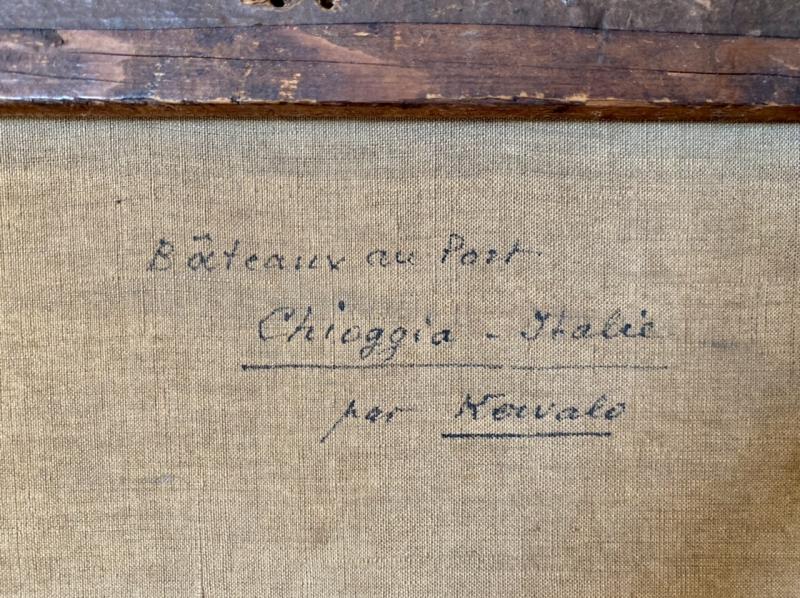 Bâteaux au Port
Chioggia - Italie
par Kowalo